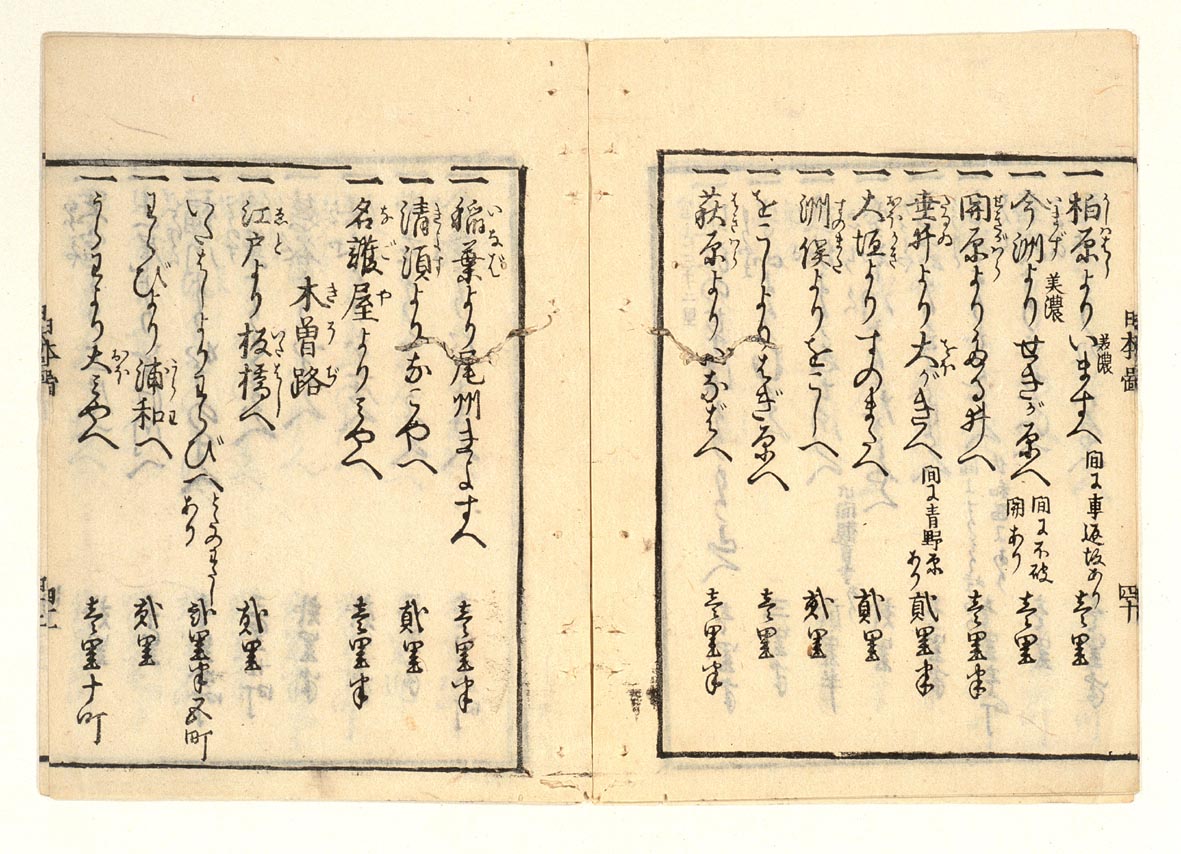 一柏原よりいますへ 間に車返坂あり 壱里
一今洲よりせきが原へ 間に不破関あり 壱里
一関原よりたる井へ 壱里半
一垂井より大がきへ 間に青野原あり 貳里半
一大垣よりすのまたへ 貳里
一洲俣よりをこしへ 貳里
一をこしよりはぎ原へ 壱里
一萩原よりいなばへ
一稲葉より尾州きよすへ 壱里半
一清須よりなごやへ 貳里
一名護屋よりみやへ 壱里半
木曽路
一江戸より板橋へ 貳里
一いたばしよりわらびへ とだのわたしあり 貳里半五町
一わらびより浦和へ 貳里
一うらわより大みやへ 壱里十町